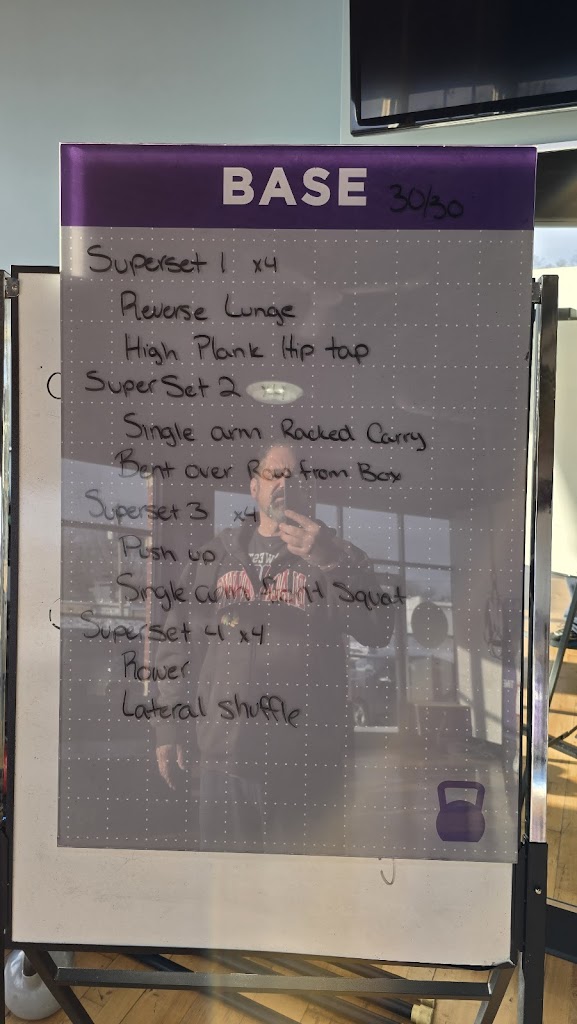 BASE 30/30
Superset 1 x4
Reverse Lunge
High Plank Hip tap
SuperSet 2 x4
Single arm Racked Carry
Bent over Row from Box
Superset 3 x4
Push up
Single arm front Squat
Superset 4 x4
Rower
Lateral shuffle